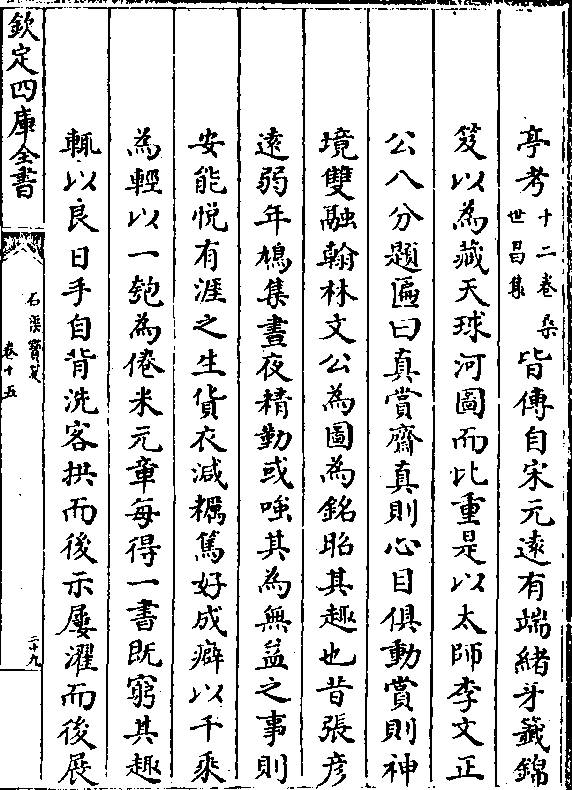 亭考十二卷桑世昌集皆傳自宋元遠有端緒牙籤錦
笈以為藏天球河圖而比重是以太師李文正
公八分題匾曰真賞齋真則心目俱動賞則神
境雙融翰林文公為圖為銘昭其趣也昔張彦
遠弱年鳩集晝夜精勤或嗤其為無益之事則
安能悦有涯之生貨衣減糲篤好成癖以千乘
為輕以一瓢為倦米元章每得一書既窮其趣
輒以良日手自背洗客拱而後示屢濯而後展
欽定四庫全書
石渠寳笈
卷十五
二十九